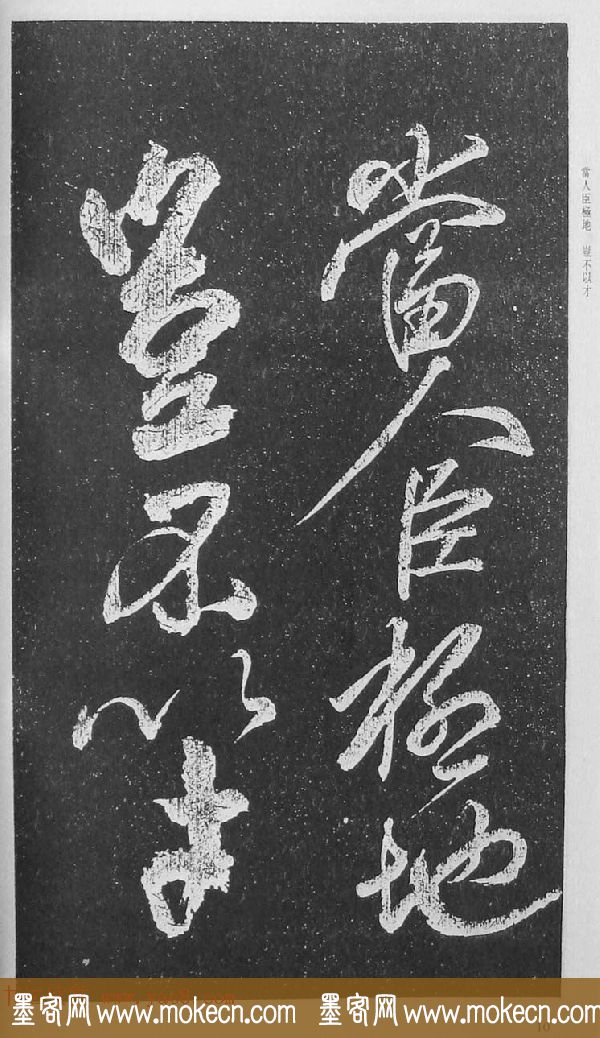 當人臣極地
豈不以才
當人臣極地 豈不以才
墨客网 www.mokecn.com 墨客网 www.mokecn.com
10